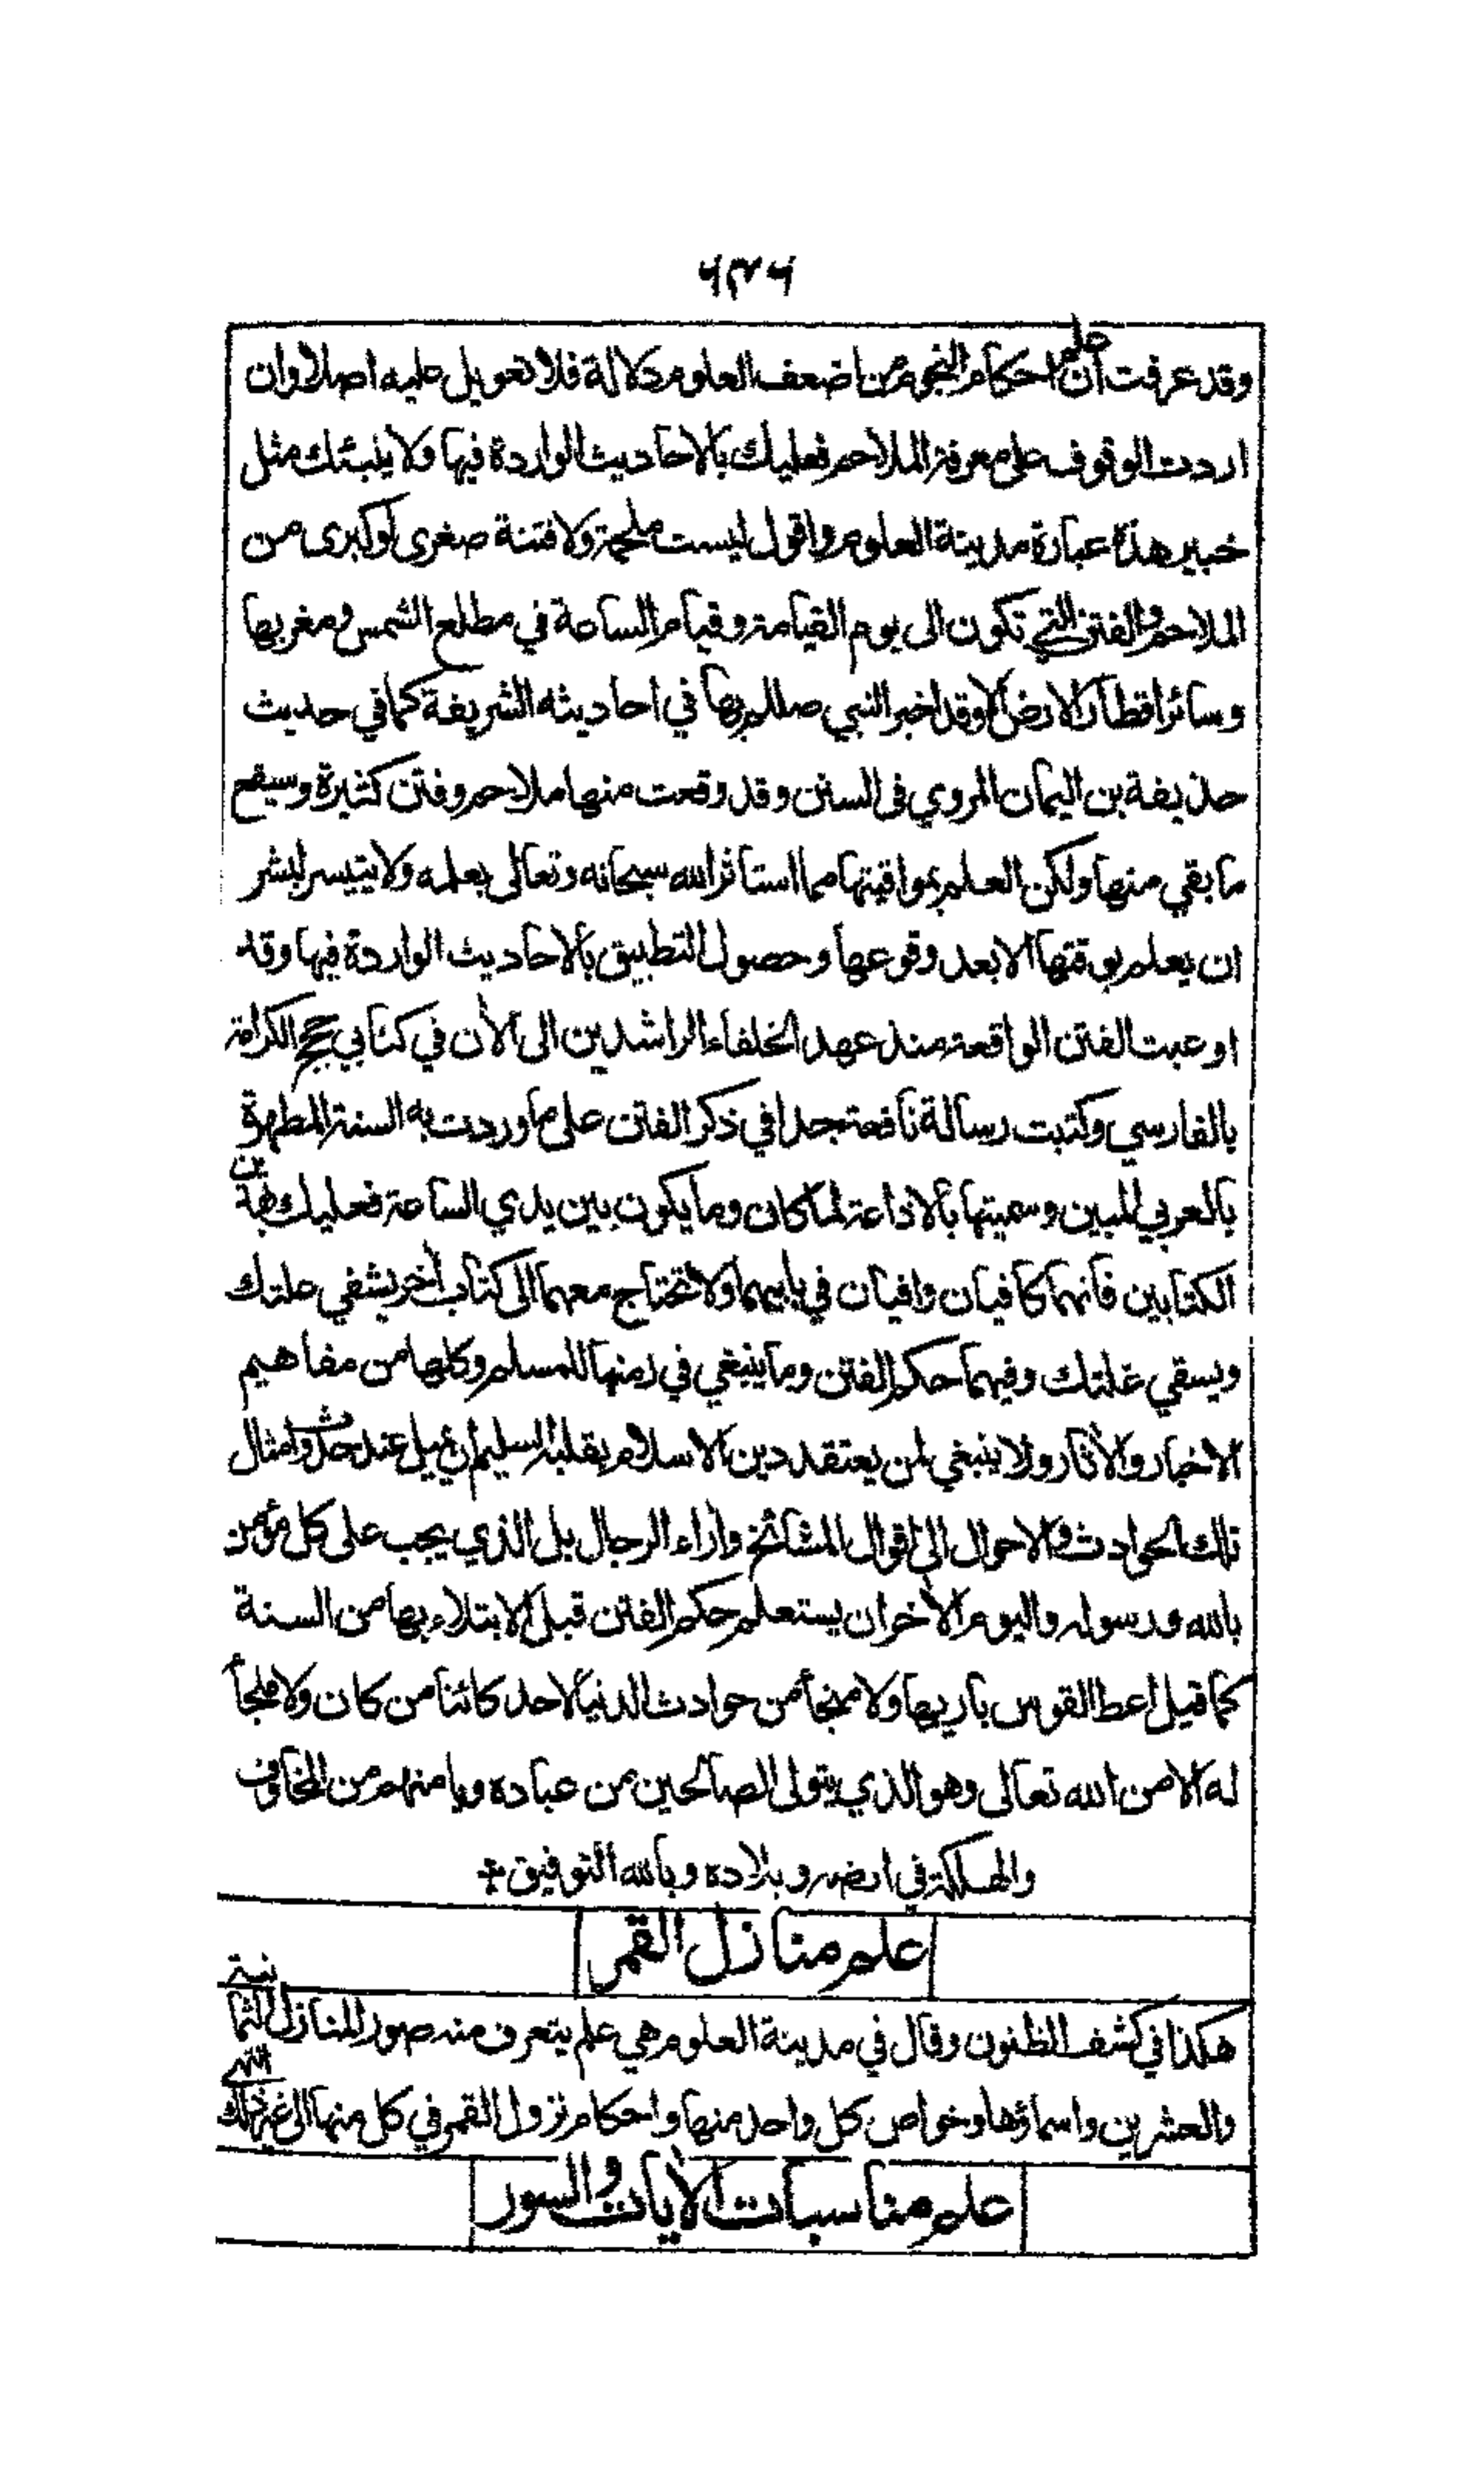 ٦٣٦
وقد عرفت ان علم احكام النجوم من اضعف العلوم دلالة فلا تعويل عليه اصلا وان
اردت الوقوف على معرفة الملاحم فعليك بالاحاديث الواردة فيها ولا ينبئك مثل
خبير هذا عبارة مدينة العلوم واقول ليست ملحمة ولا فتنة صغرى او كبرى من
الملاحم والفتن التي تكون الى يوم القيامة وقيام الساعة في مطلع الشمس ومغربها
وسائر اقطار الارض الا وقد اخبر النبي صللم بها في احاديثه الشريفة كما في حديث
حذيفة بن اليمان المروي في السنن وقد وقعت منها ملاحم وفتن كثيرة وسيقع
ما بقي منها ولكن العلم بمواقيتها مما استاثر الله سبحانه وتعالى بعلمه ولا يتيسر لبشر
ان يعلم بوقتها الا بعد وقوعها وحصول التطبيق بالاحاديث الواردة فيها وقد
اوعبت الفتن الواقعة منذ عهد الخلفاء الراشدين الى الأن في كتابي حجج الكرامة
بالفارسي وكتبت رسالة نافعة جدا في ذكر الفتن على ما وردت به السنة المطهرة
بالعربي المبين وسميتها بالاذاعة لما كان وما يكون بين يدي الساعة فعليك بهذين
الكتابين فانهما كافيان وافيان في بابهما ولا تحتاج معهما الى كتاب أخر يشفي علتك
ويسقي غلتك وفيهما حكم الفتن وما ينبغي في زمنها للمسلم وكلها من مفاهيم
الاخبار والأثار ولا ينبغي لمن يعتقد دين الاسلام بقلبه السليم ان يميل عند حدوث امثال
تلك الحوادث والاحوال الى اقوال المشائخ وأراء الرجال بل الذي يجب على كل مؤمن
بالله ورسوله واليوم الأخر ان يستعلم حكم الفتن قبل الابتلاء بها من السنة
كما قيل اعط القوس باريها ولا منجأ من حوادث الدنيا لاحد كائنا من كان ولا ملجأ
له الا من الله تعالى وهو الذي يتولى الصالحين من عباده ويامنهم من المخاوف
والهلكة في ارضه وبلاده وبالله التوفيق +
علم منازل القمر
هكذا في كشف الظنون وقال في مدينة العلوم هي علم يتعرف منه صور المنازل الثمانية
والعشرين واسماؤها وخواص كل واحد منها واحكام نزول القمر في كل منها الى غير ذلك انتهى
علم مناسبات الأيات والسور